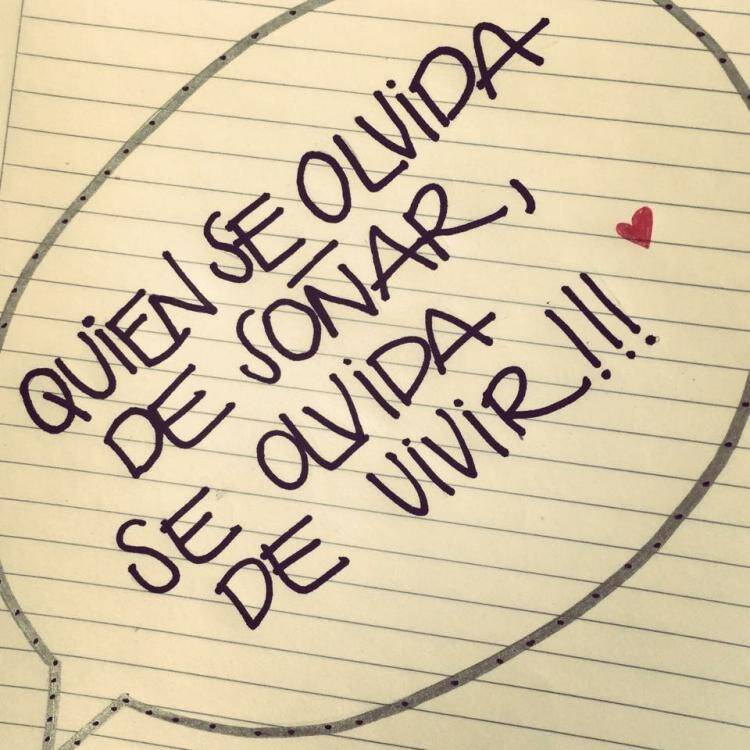 QUIEN SE OLVIDA
DE SOÑAR,
SE OLVIDA
DE VIVIR!!!